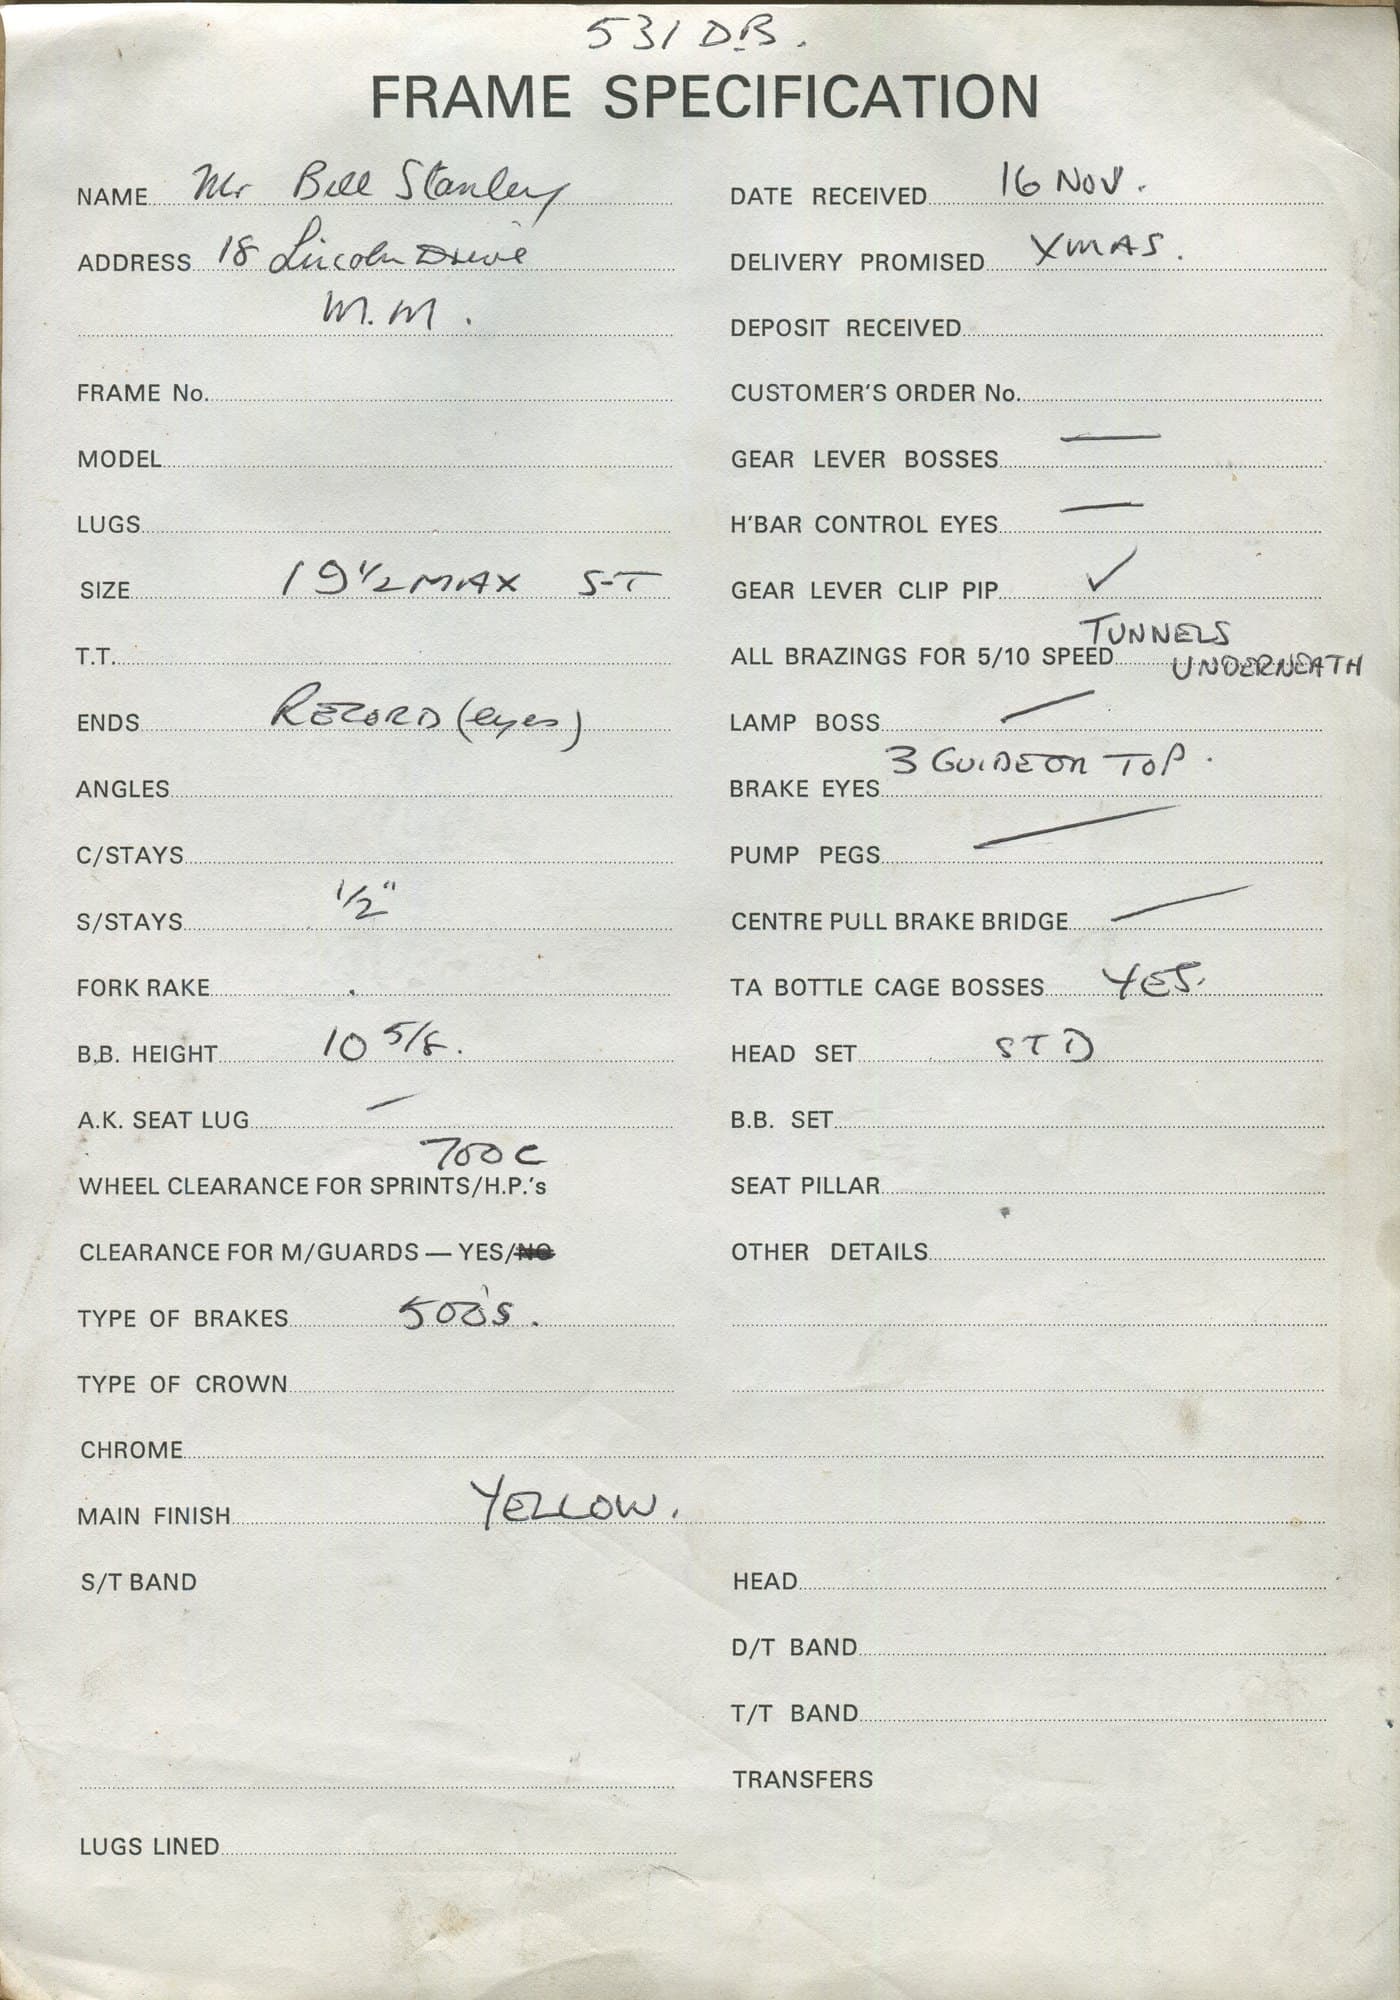 531 D.B.
FRAME SPECIFICATION
NAME Mr Bill Stanley
ADDRESS 18 Lincoln Drive
M.M.
FRAME No.
MODEL
LUGS
SIZE 19 1/2 MAX S-T
T.T.
ENDS RECORD (eyes)
ANGLES
C/STAYS
S/STAYS 1/2"
FORK RAKE
B.B. HEIGHT 10 5/8.
A.K. SEAT LUG —
700C
WHEEL CLEARANCE FOR SPRINTS/H.P.'s
CLEARANCE FOR M/GUARDS — YES/NO
TYPE OF BRAKES 500's.
TYPE OF CROWN
CHROME
MAIN FINISH YELLOW.
S/T BAND
LUGS LINED
DATE RECEIVED 16 NOV.
DELIVERY PROMISED XMAS.
DEPOSIT RECEIVED
CUSTOMER'S ORDER No.
GEAR LEVER BOSSES —
H'BAR CONTROL EYES —
GEAR LEVER CLIP PIP ✓
ALL BRAZINGS FOR 5/10 SPEED TUNNELS
UNDERNEATH
LAMP BOSS —
BRAKE EYES 3 GUIDE ON TOP.
PUMP PEGS —
CENTRE PULL BRAKE BRIDGE —
TA BOTTLE CAGE BOSSES YES.
HEAD SET STD
B.B. SET
SEAT PILLAR
OTHER DETAILS
HEAD
D/T BAND
T/T BAND
TRANSFERS